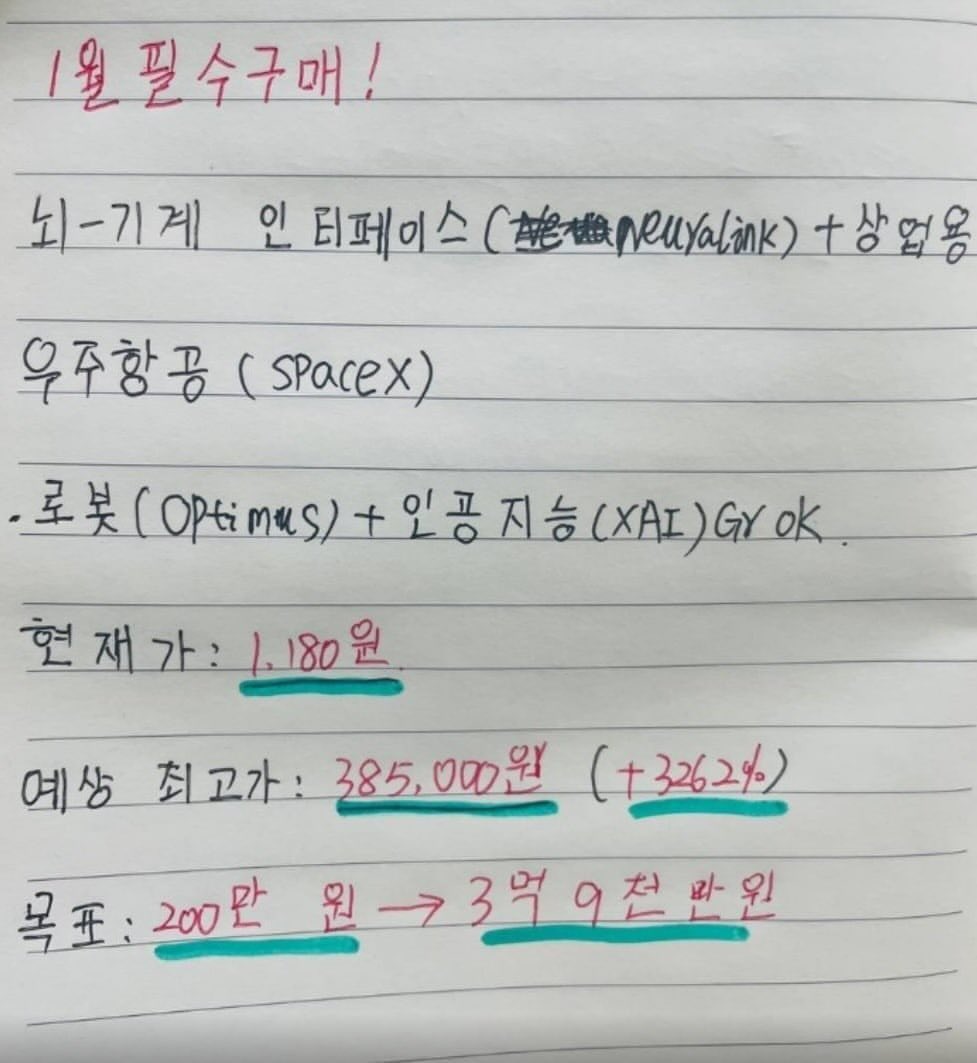 1월 필수구매!
뇌-기계 인터페이스(neuralink)+상업용
우주항공(spacex)
.로봇(optimus)+인공지능(XAI)Grok.
현재가: 1.180원
예상 최고가: 385,000원 (+3262%)
목표: 200만 원 → 3억 9천 만원